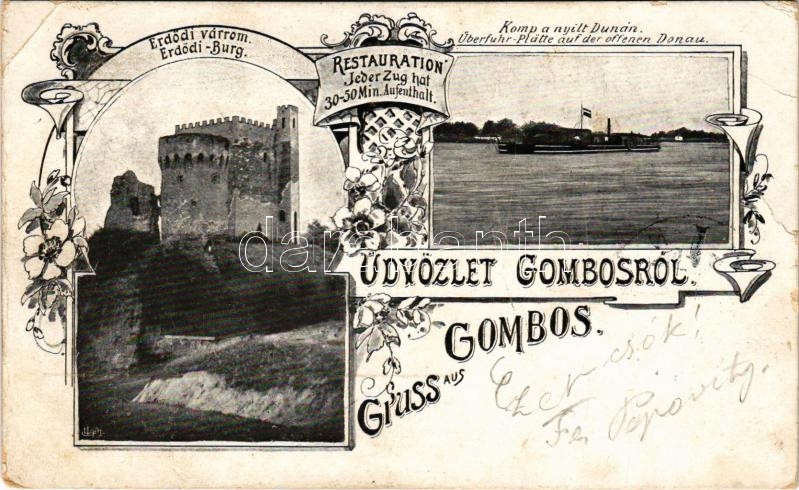 Erdődi várrom.
Erdődi-Burg.
RESTAURATION
Jeder Zug hat
30-50 Min. Aufenthalt.
Komp a nyilt Dunán.
Überfuhr-Plätte auf der offenen Donau.
darabanth
ÜDVÖZLET GOMBOSRÓL.
GRUSS AUS GOMBOS.
Ezer csók!
Popovits